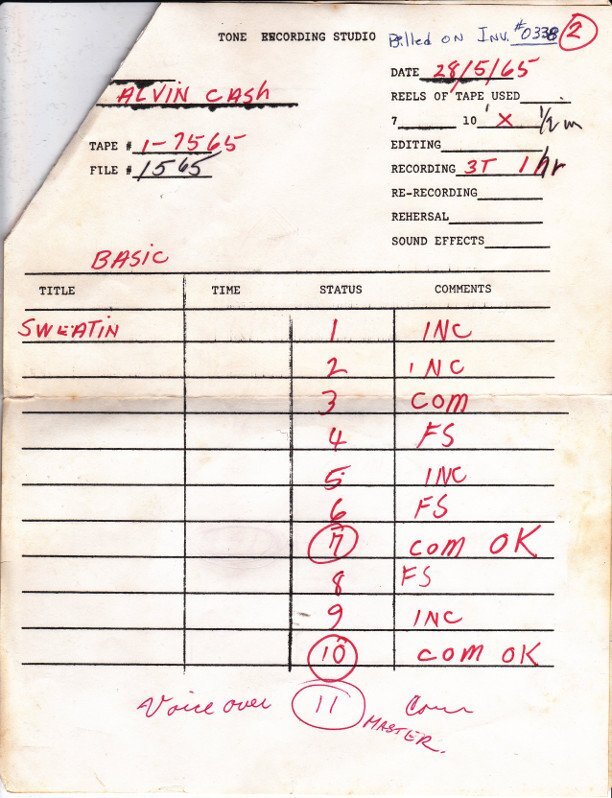 TONE RECORDING STUDIO Billed on Inv. #0338 2
DATE 28/5/65
ALVIN CASH
REELS OF TAPE USED
7 10 X 1/2 m
TAPE # 1-7565
EDITING
FILE # 1565
RECORDING 3T 1 hr
RE-RECORDING
REHERSAL
SOUND EFFECTS
BASIC
TITLE TIME STATUS COMMENTS
SWEATIN 1 INC
2 INC
3 COM
4 FS
5 INC
6 FS
7 COM OK
8 FS
9 INC
10 COM OK
Voice over 11 Com
MASTER.